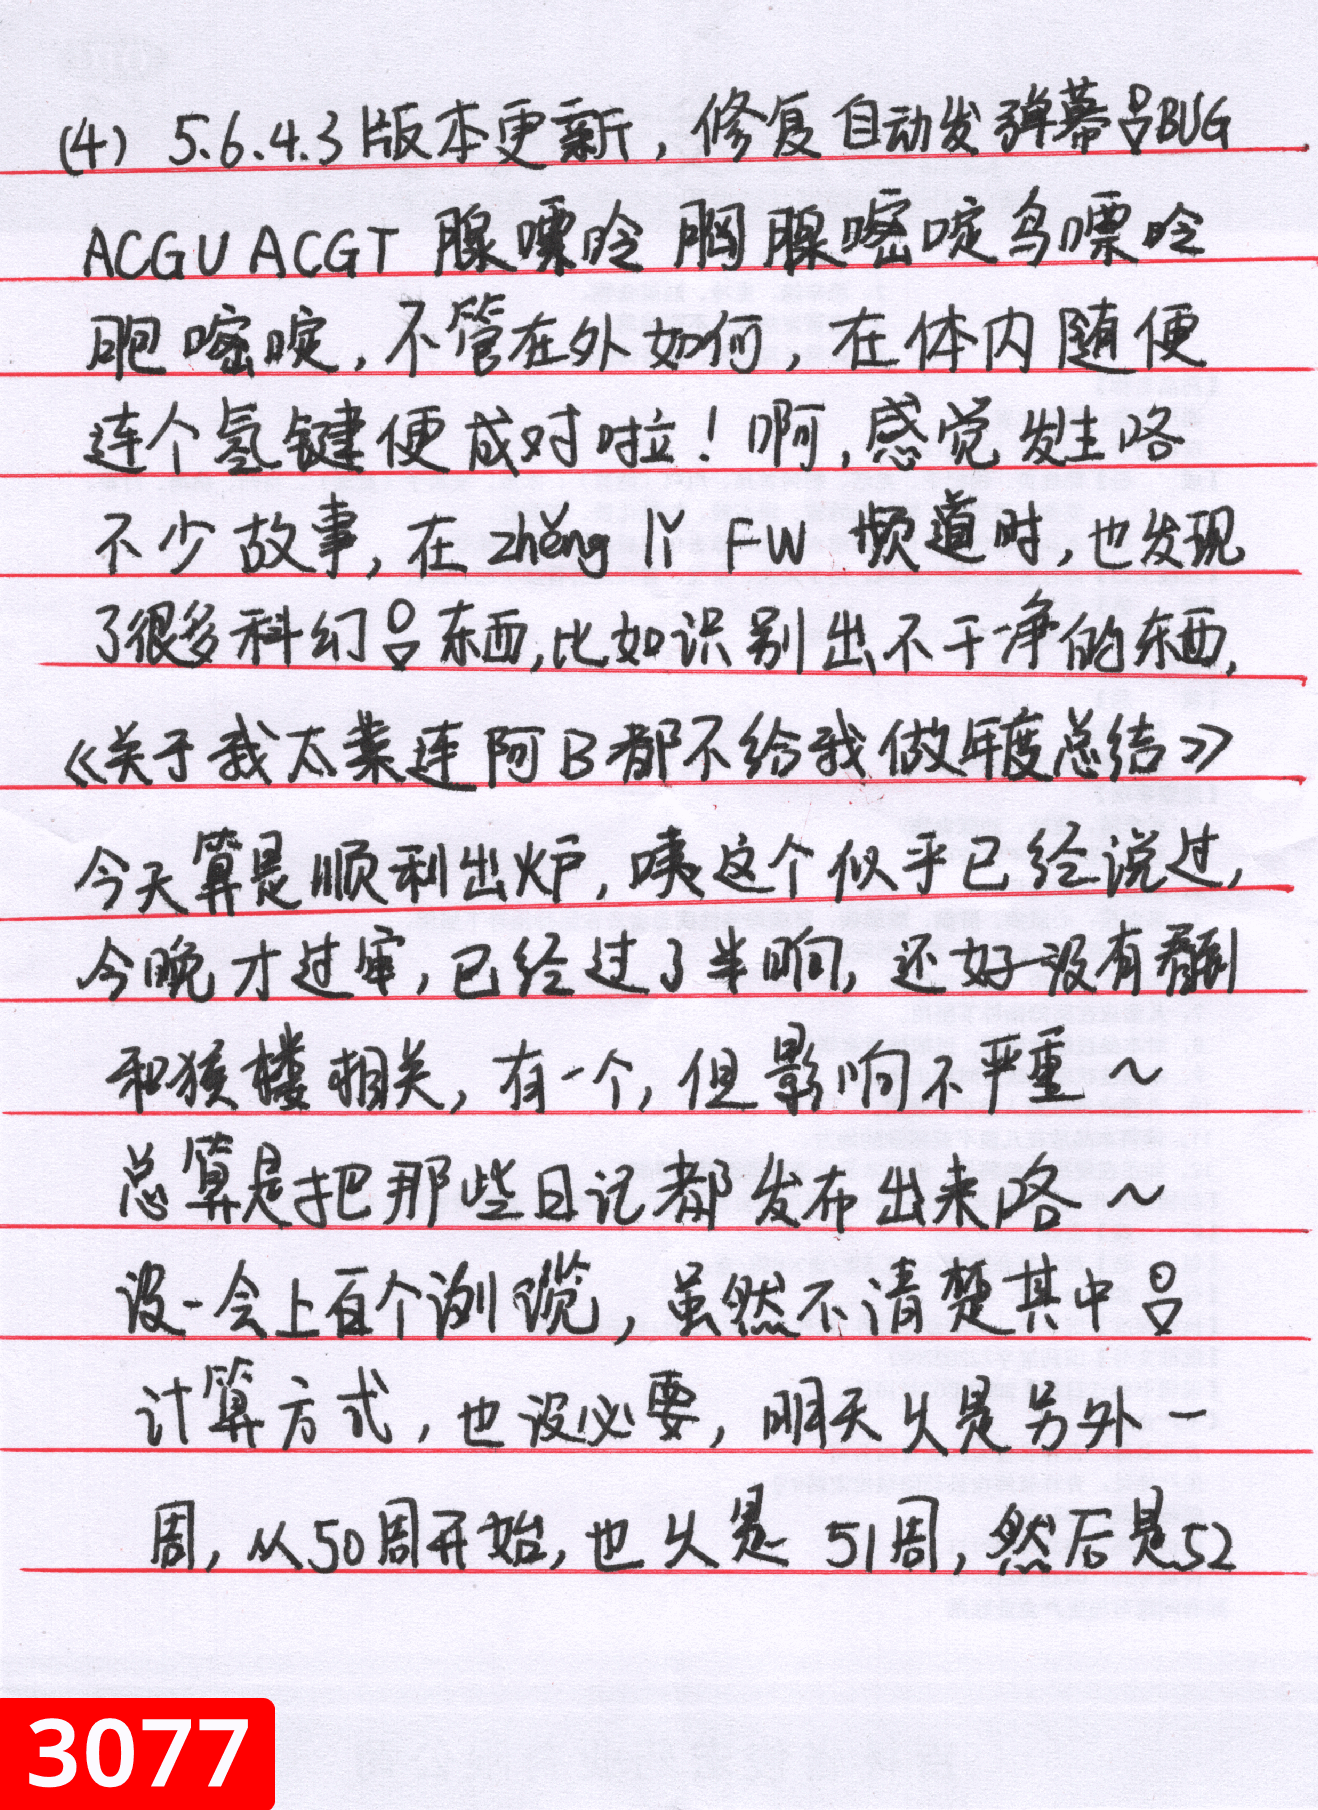 (4) 5.6.4.3版本更新，修复自动发弹幕吕BUG
ACGU ACGT 腺嘌呤 胸腺嘧啶鸟嘌呤
胞嘧啶，不管在外如何，在体内随便
连个氢键便成对啦！啊，感觉发生咯
不少故事，在zhěng lǐ FW 频道时，也发现
了很多科幻吕东西，比如识别出不干净的东西，
《关于我太菜连阿B都不给我做年度总结》
今天算是顺利出炉，咦这个似乎已经说过，
今晚才过审，已经过了半晌，还好没有看到
和猴楼相关，有一个，但影响不严重～
总算是把那些日记都发布出来咯～
没一会上百个浏览，虽然不清楚其中吕
计算方式，也没必要，明天乂是另外一
周，从50周开始，也乂是 51周，然后是52
3077